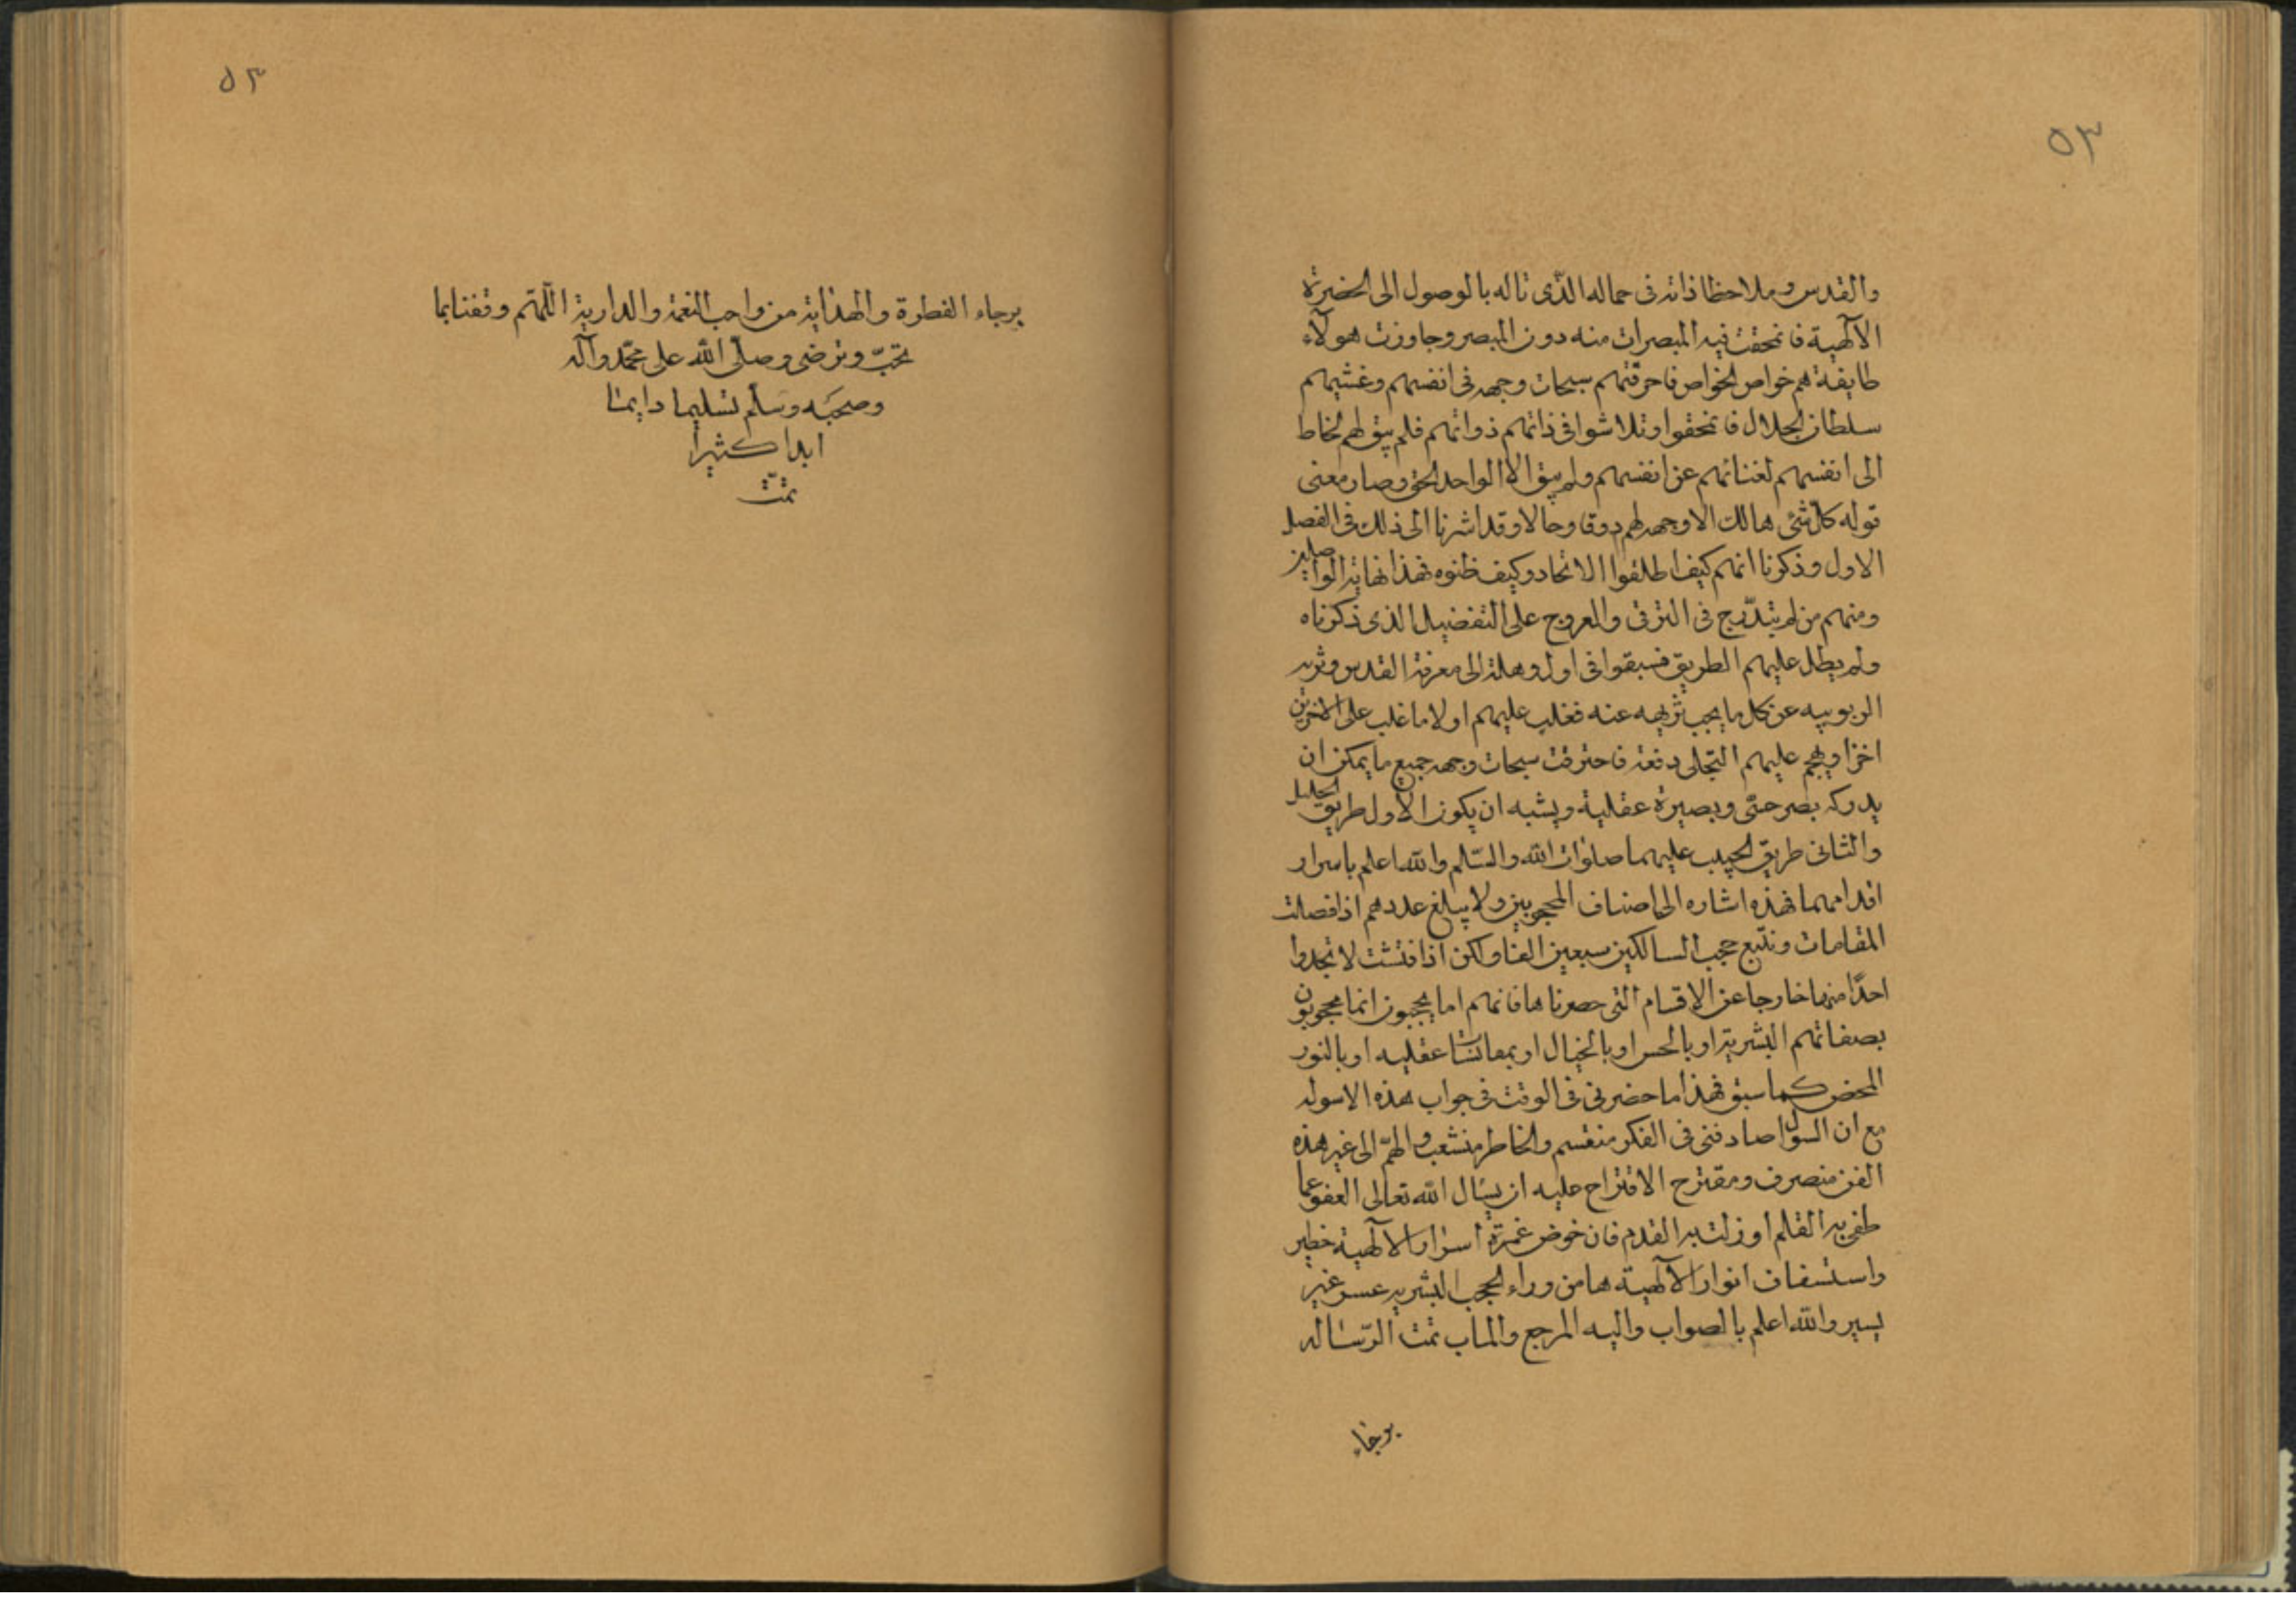 ٥٣
والقدس وملاحظا ذاته فى جماله الذّى ناله بالوصول الى الحضرة
الآلهية فانمحقت فيه المبصرات منه دون المبصر وجاوزت هولآء
طايفة هم خواص الخواص فاحرقتهم سبحات وجهه فى انفسهم وغشيهم
سلطان الجلال فانمحقوا وتلاشوا فى ذاتهم ذواتهم فلم يبق لهم لحاظ
الى انفسهم لفنائهم عن انفسهم ولم يبق الا الواحد الحق وصار معنى
قوله كل شئ هالك الا وجهه لهم ذوقا وحالا وقد اشرنا الى ذلك فى الفصل
الاول وذكرنا انهم كيف اطلقوا الاتحاد وكيف ظنوه فهذا نهاية الواصلين
ومنهم من لم يتدّرج فى الترقى والعروج على التفضيل الذى ذكرناه
ولم يطل عليهم الطريق فسبقوا فى اول وهلة الى معرفة القدس وتنزيه
الربوبيه عن كل ما يجب تنزيهه عنه فغلب عليهم اولا ما غلب على الاخرين
اخرا وهجم عليهم التّجلى دفعة فاحترقت سبحات وجهه جميع ما يمكن ان
يدركه بصر حسّى وبصيرة عقلية ويشبه ان يكون الاول طريق الخليل
والثانى طريق الحبيب عليهما صلوات الله والسّلم والله اعلم باسرار
اقدامهما فهذه اشاره الى اصناف المحجوبين ولا يبلغ عددهم اذا فصلت
المقامات وتتبع حجب السالكين سبعين الفا ولكن اذا فتشت لا تجد وا
احدًا منها خارجا عن الاقسام التى حصرناها فانهم اما يحجبون انما محجوبون
بصفاتهم البشرية او بالحس او بالخيال او بمقايسات عقليه او بالنور
المحض كما سبق فهذا ما حضرنى فى الوقت فى جواب هذه الاسوله
مع ان السوال صادفنى فى الفكر منقسم والخاطر منشعب والهمّ الى غير هذه
الفن منصرف ومقترح الاقتراح عليه ان يسال الله تعالى العفو عما
طغى به القلم او زلت به القدم فان خوض غمرة اسرار الآلهية خطير
واستشفاف انوار الآلهية ها من وراء الحجب البشريه عسر غير
يسير والله اعلم بالصواب واليه المرجع والمآب تمت الرّساله
برجاء
٥٣
برجاء الفطرة والهداية من واجب النعمة والدارية اللّهم وفقنا بما
تحبّ وترضى وصلّى الله على محمّد وآله
وصحبه وسلم تسليما دايما
ابدا كثيرا
تمّت